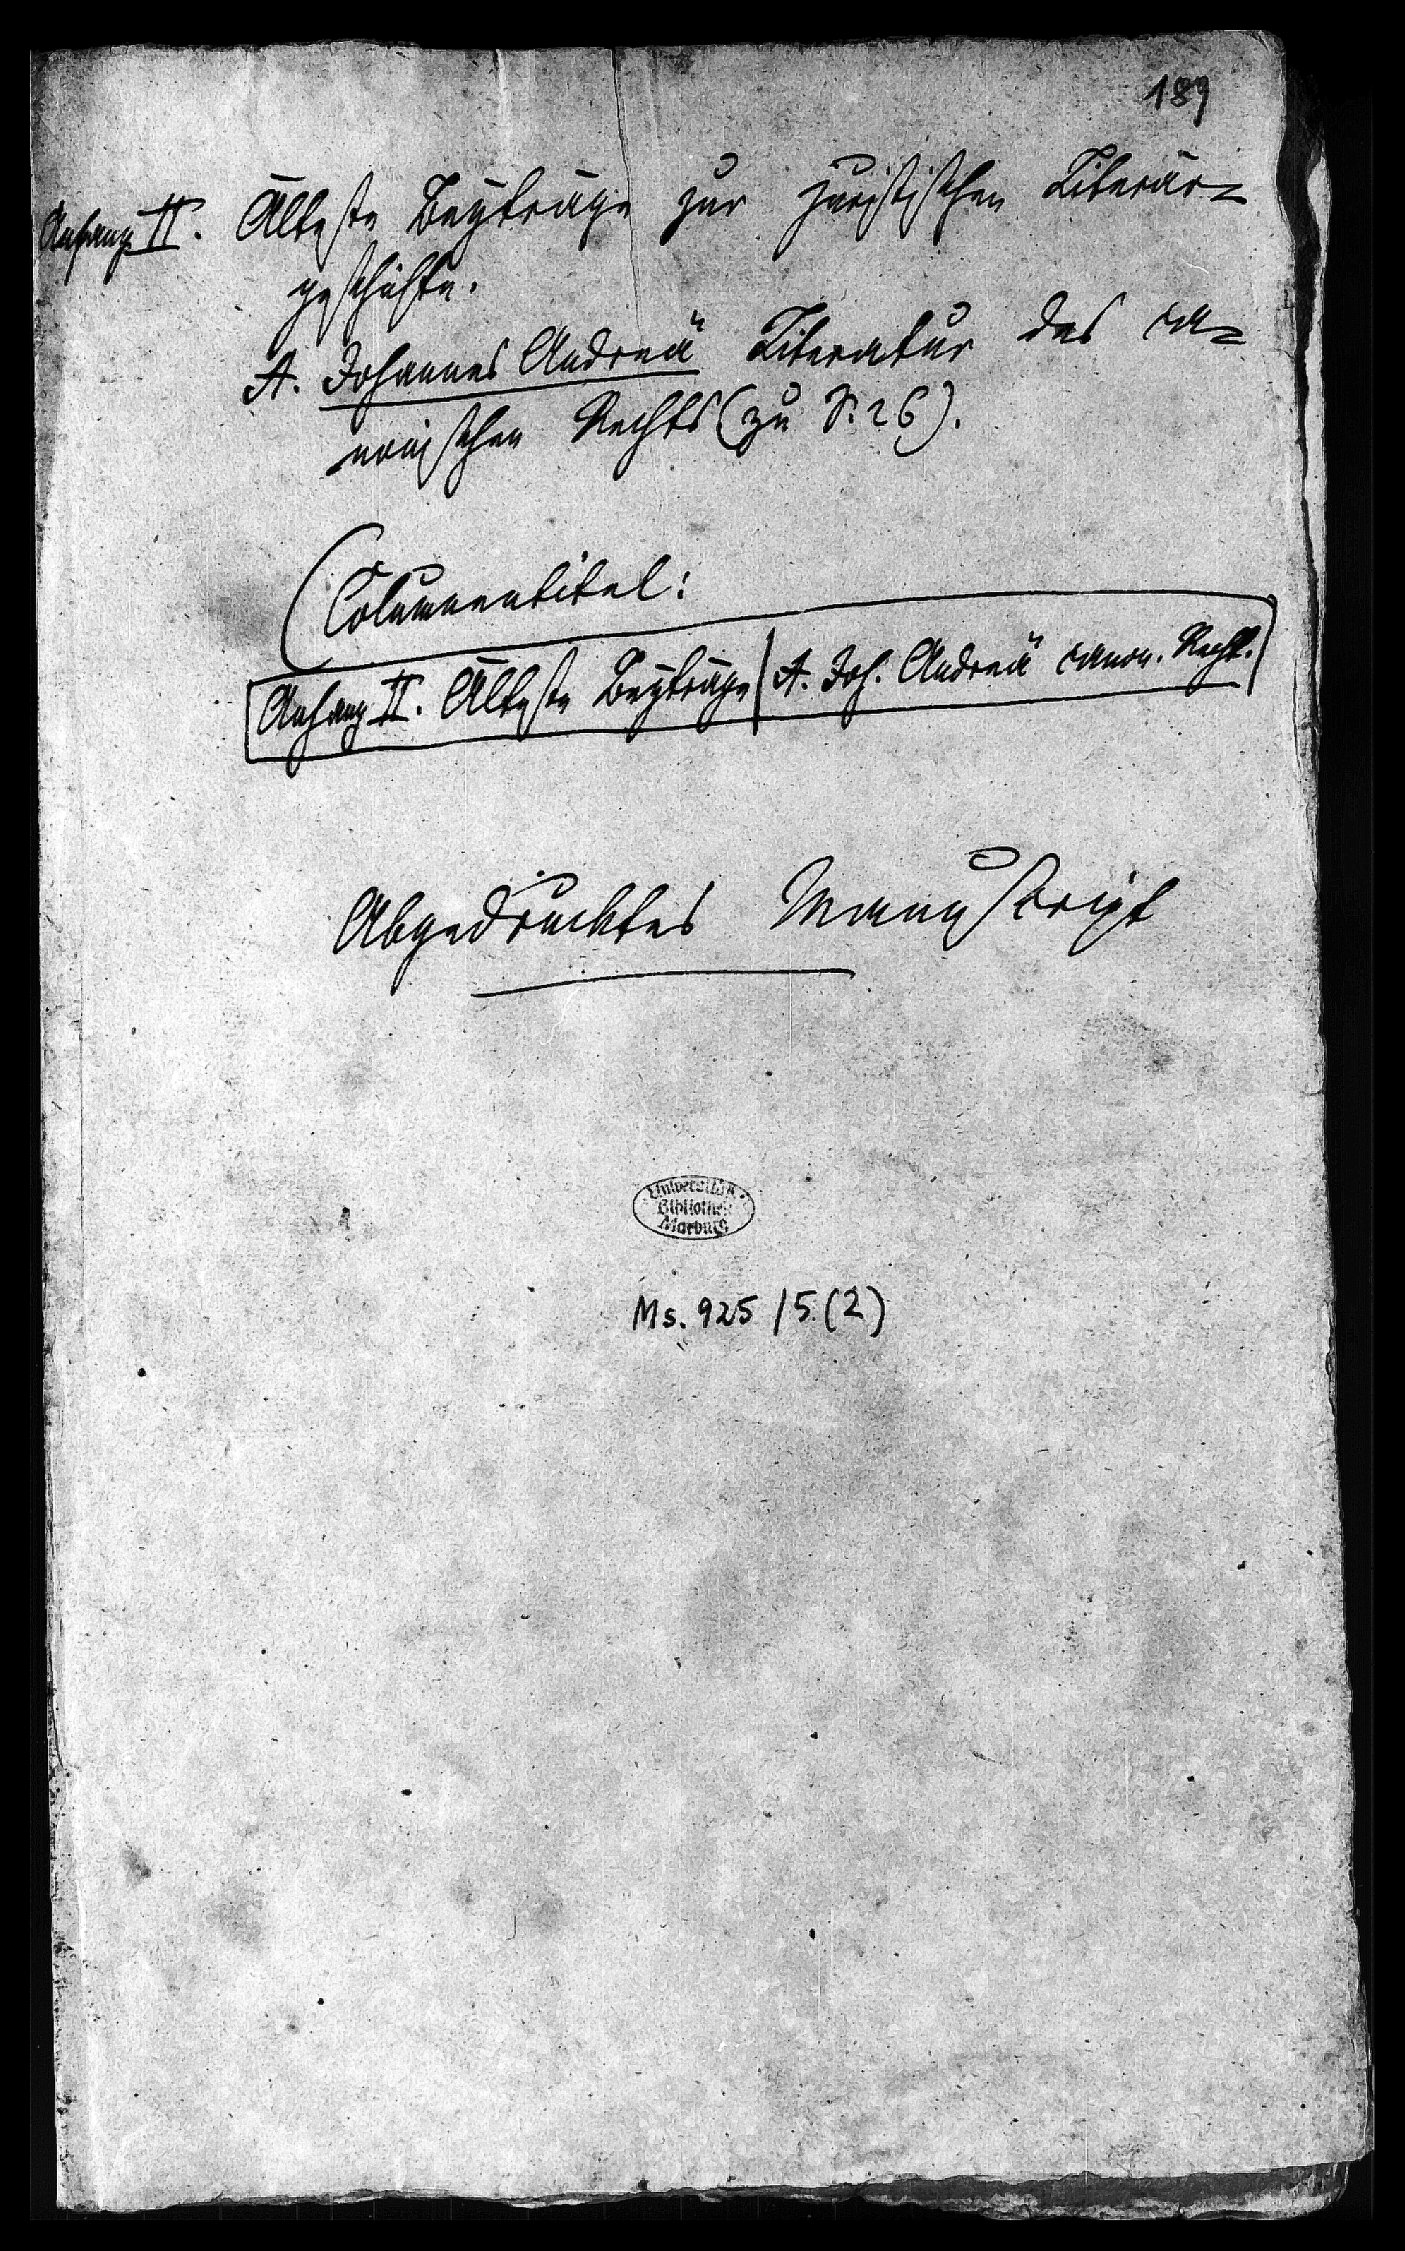 189
Anhang II. Älteste Beyträge zur juristischen Literär-
geschichte.
A. Johannes Andreä Literatur des ca-
nonischen Rechts (zu S. 26).
Columnentitel:
Anhang II. Älteste Beyträge | A. Joh. Andreä canon. Recht.
Abgedrucktes Manuskript
Universitäts
Bibliothek
Marburg
Ms. 925 / 5 (2)